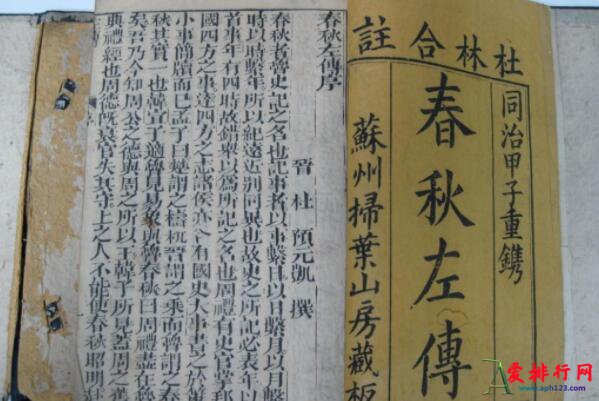 杜林合註
同治甲子重鐫
春秋左傳
蘇州掃葉山房藏板
春秋左傳序
晉 杜 預元凱 撰
春秋者魯史記之名也記事者以事繫日以日繫月以月繫
時以時繫年所以紀遠近別同異也故史之所記必表年以
首事年有四時故錯舉以爲所記之名也周禮有史官掌邦
國四方之事達四方之志諸侯亦各有國史大事書之於策
小事簡牘而已孟子曰楚謂之檮杌晉謂之乘而魯謂之春
秋其實一也韓宣子適魯見易象與魯春秋曰周禮盡在魯
矣吾乃今知周公之德與周之所以王韓子所見蓋周之舊
典禮經也周德既衰官失其守上之人不能使春秋昭明赴
爱排行网
www.aph123.com